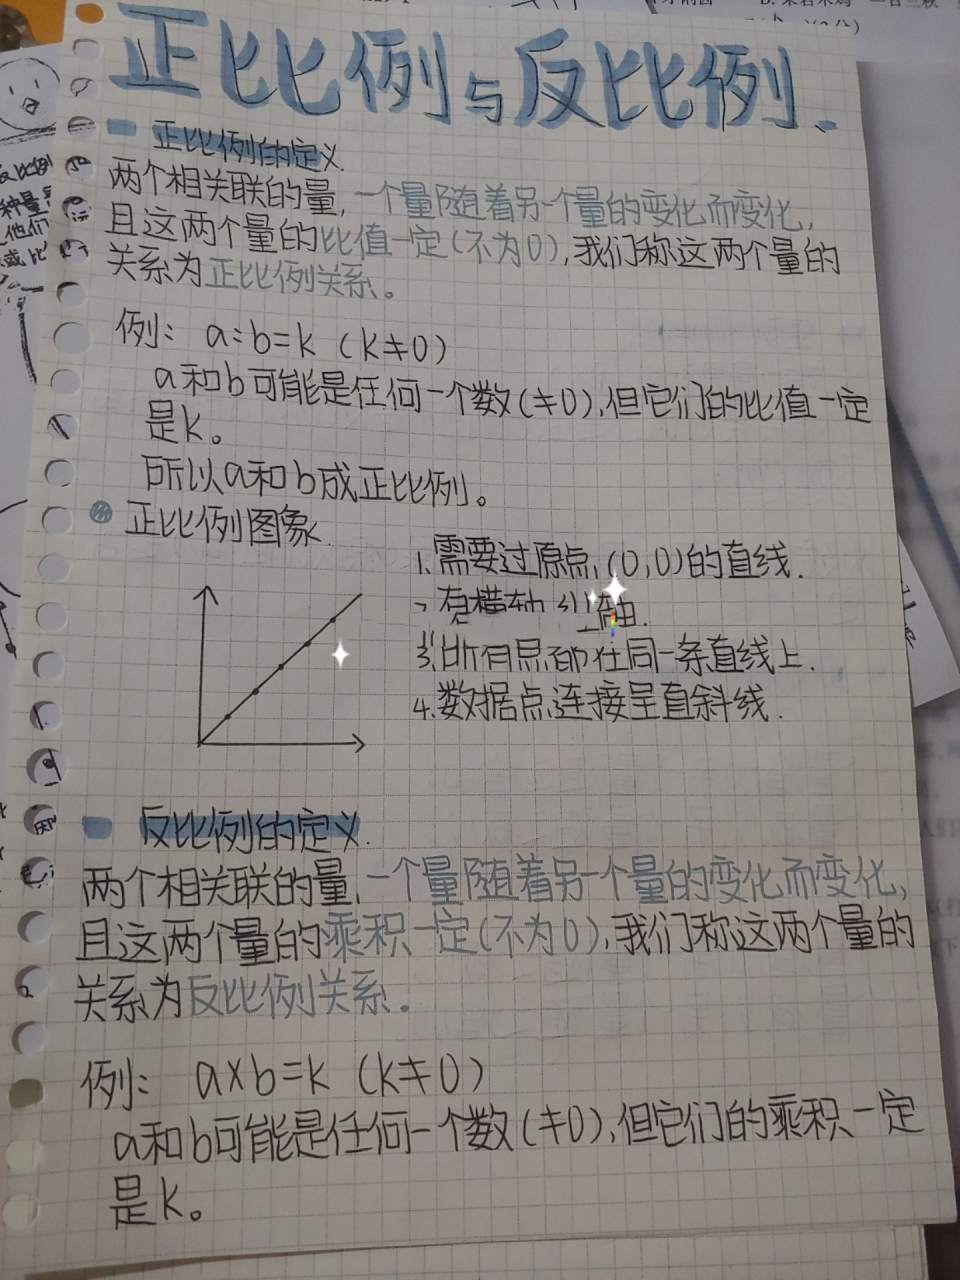 正比例与反比例.
正比例的定义.
两个相关联的量,一个量随着另一个量的变化而变化,
且这两个量的比值一定(不为0),我们称这两个量的
关系为正比例关系。
例: a:b=k (k≠0)
a和b可能是任何一个数(≠0),但它们的比值一定
是k。
所以a和b成正比例。
正比例图象.
1.需要过原点,(0,0)的直线.
有横轴 纵轴.
3.所有点都在同一条直线上.
4.数据点连接呈直斜线.
反比例的定义.
两个相关联的量,一个量随着另一个量的变化而变化,
且这两个量的乘积一定(不为0),我们称这两个量的
关系为反比例关系。
例: a×b=k (k≠0)
a和b可能是任何一个数(≠0),但它们的乘积一定
是k。